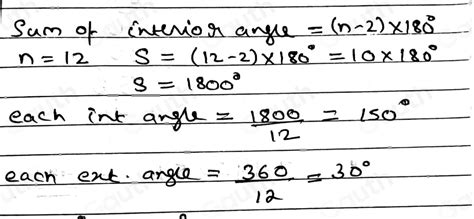 Sum of interior angle = (n-2)×180°
n = 12 S = (12-2)×180° = 10×180°
S = 1800°
each int angle = 1800/12 = 150°
each ext. angle = 360/12 = 30°